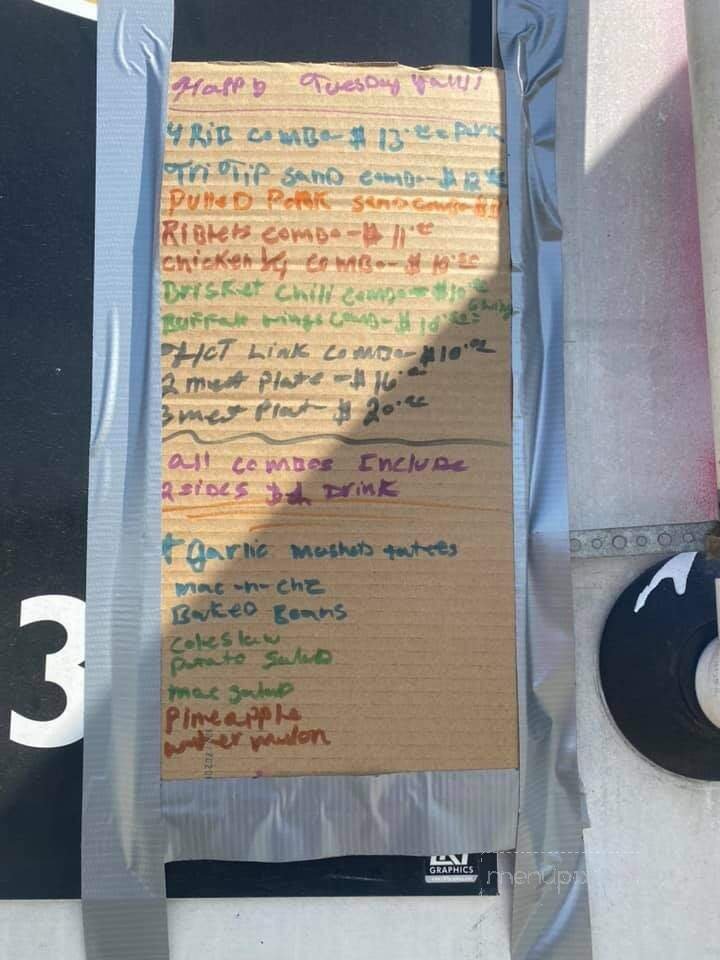 Happy Tuesday yall!
4 RiB comBo-$ 13.00 Pork
Tri Tip SanD comBo-$ 12.00
PulleD PoRK SanD comBo-$11
RiBlets comBo-$ 11.00
chicken 1/4 comBo-$ 10.00
Brisket Chili comBo-$10.00
Buffalo wings comBo-$ 10.00 6 wings
HOT Link comBo-$10.00
2 meat Plate-$ 16.00
3 meat Plat-$ 20.00
all comBos IncluDe
2 siDes Drink
garlic masheD tatees
mac-n-chz
BakeD Beans
coleslaw
Potato SalaD
mac SalaD
Pineapple
water mulon
3
GRAPHICS
menupix